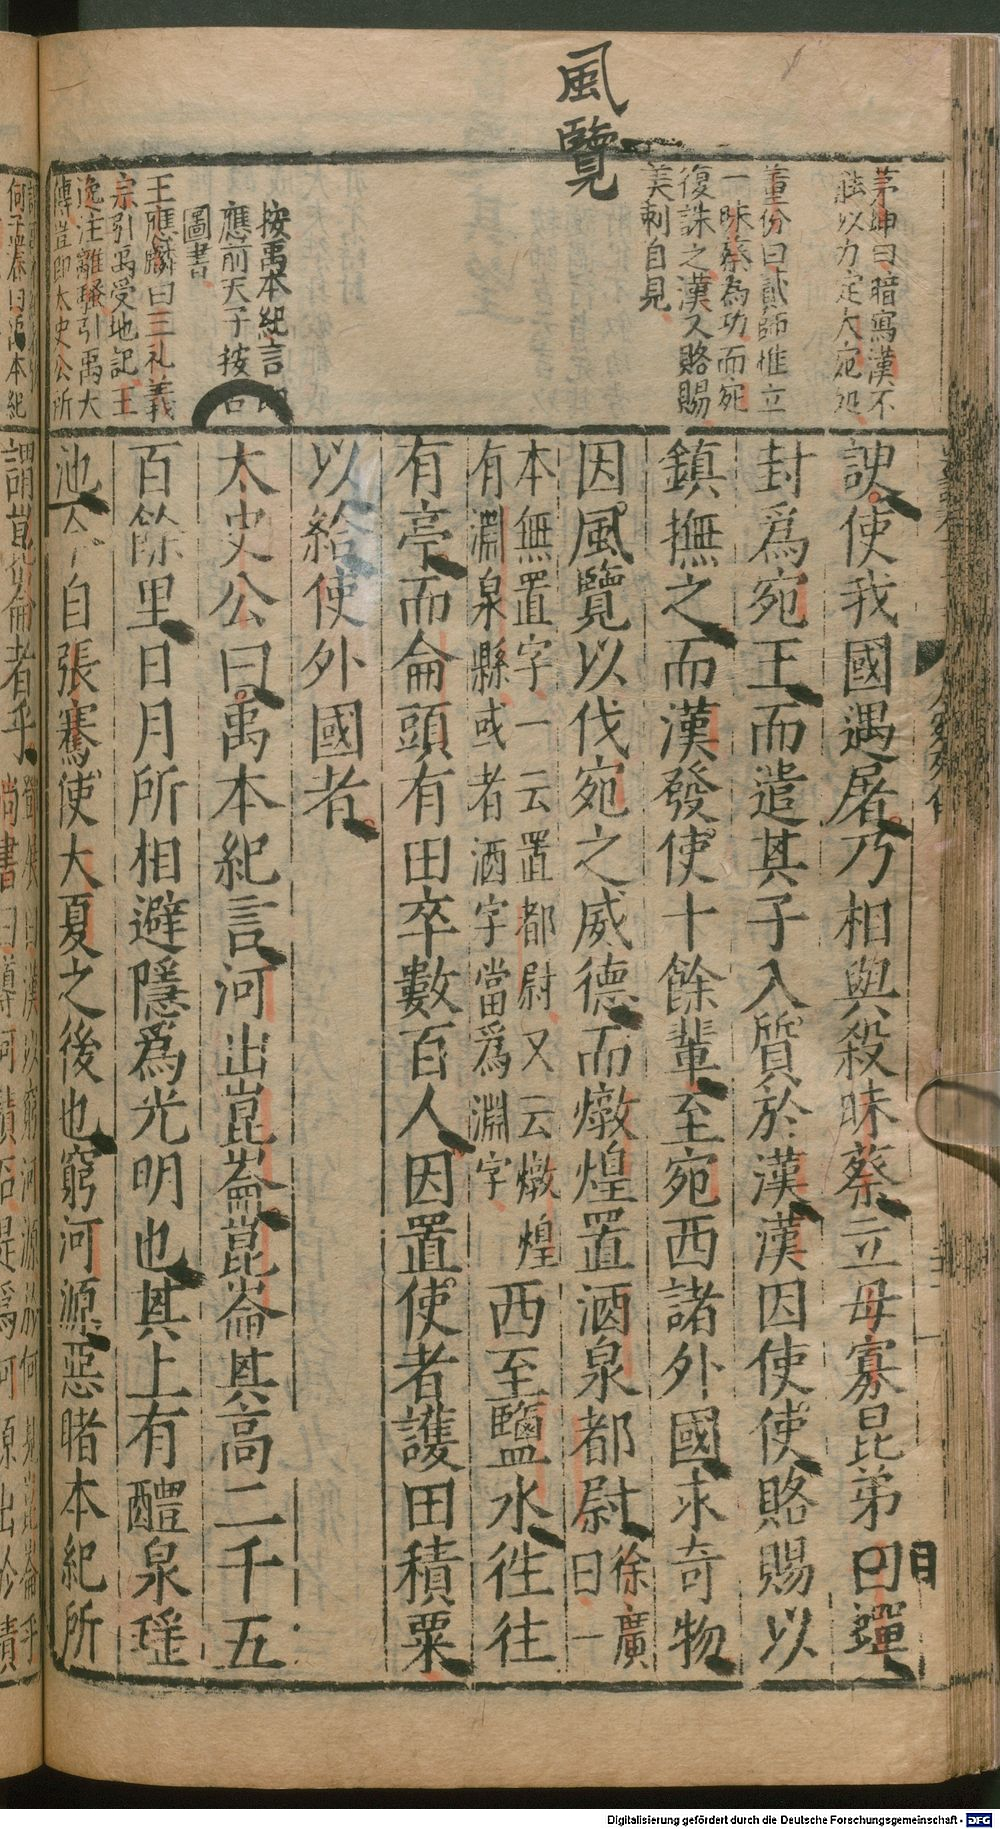 風覽
茅坤曰暗寫漢不
能以力定大宛処
董份曰貳師惟立
一昧蔡為功而宛
復誅之漢又賂賜
美刺自見
按禹本紀言
應前天子按古
圖書
王應麟曰三礼義
宗引禹受地記王
逸注離騷引禹大
傳豈即太史公所
諛使我國遇屠乃相與殺昧蔡立母寡昆弟曰蟬
封爲宛王而遣其子入質於漢漢因使使賂賜以
鎮撫之而漢發使十餘輩至宛西諸外國求奇物
因風覽以伐宛之威德而燉煌置酒泉都尉徐廣曰一
本無置字一云置都尉又云燉煌
有淵泉縣或者酒字當爲淵字
西至鹽水徃往
有亭而侖頭有田卒數百人因置使者護田積粟
以給使外國者
太史公曰禹本紀言河出崑崙崑崙其高二千五
百餘里日月所相避隱爲光明也其上有醴泉瑤
池今自張騫使大夏之後也窮河源惡睹本紀所
謂崑崙者乎
Digitalisierung gefördert durch die Deutsche Forschungsgemeinschaft - DFG